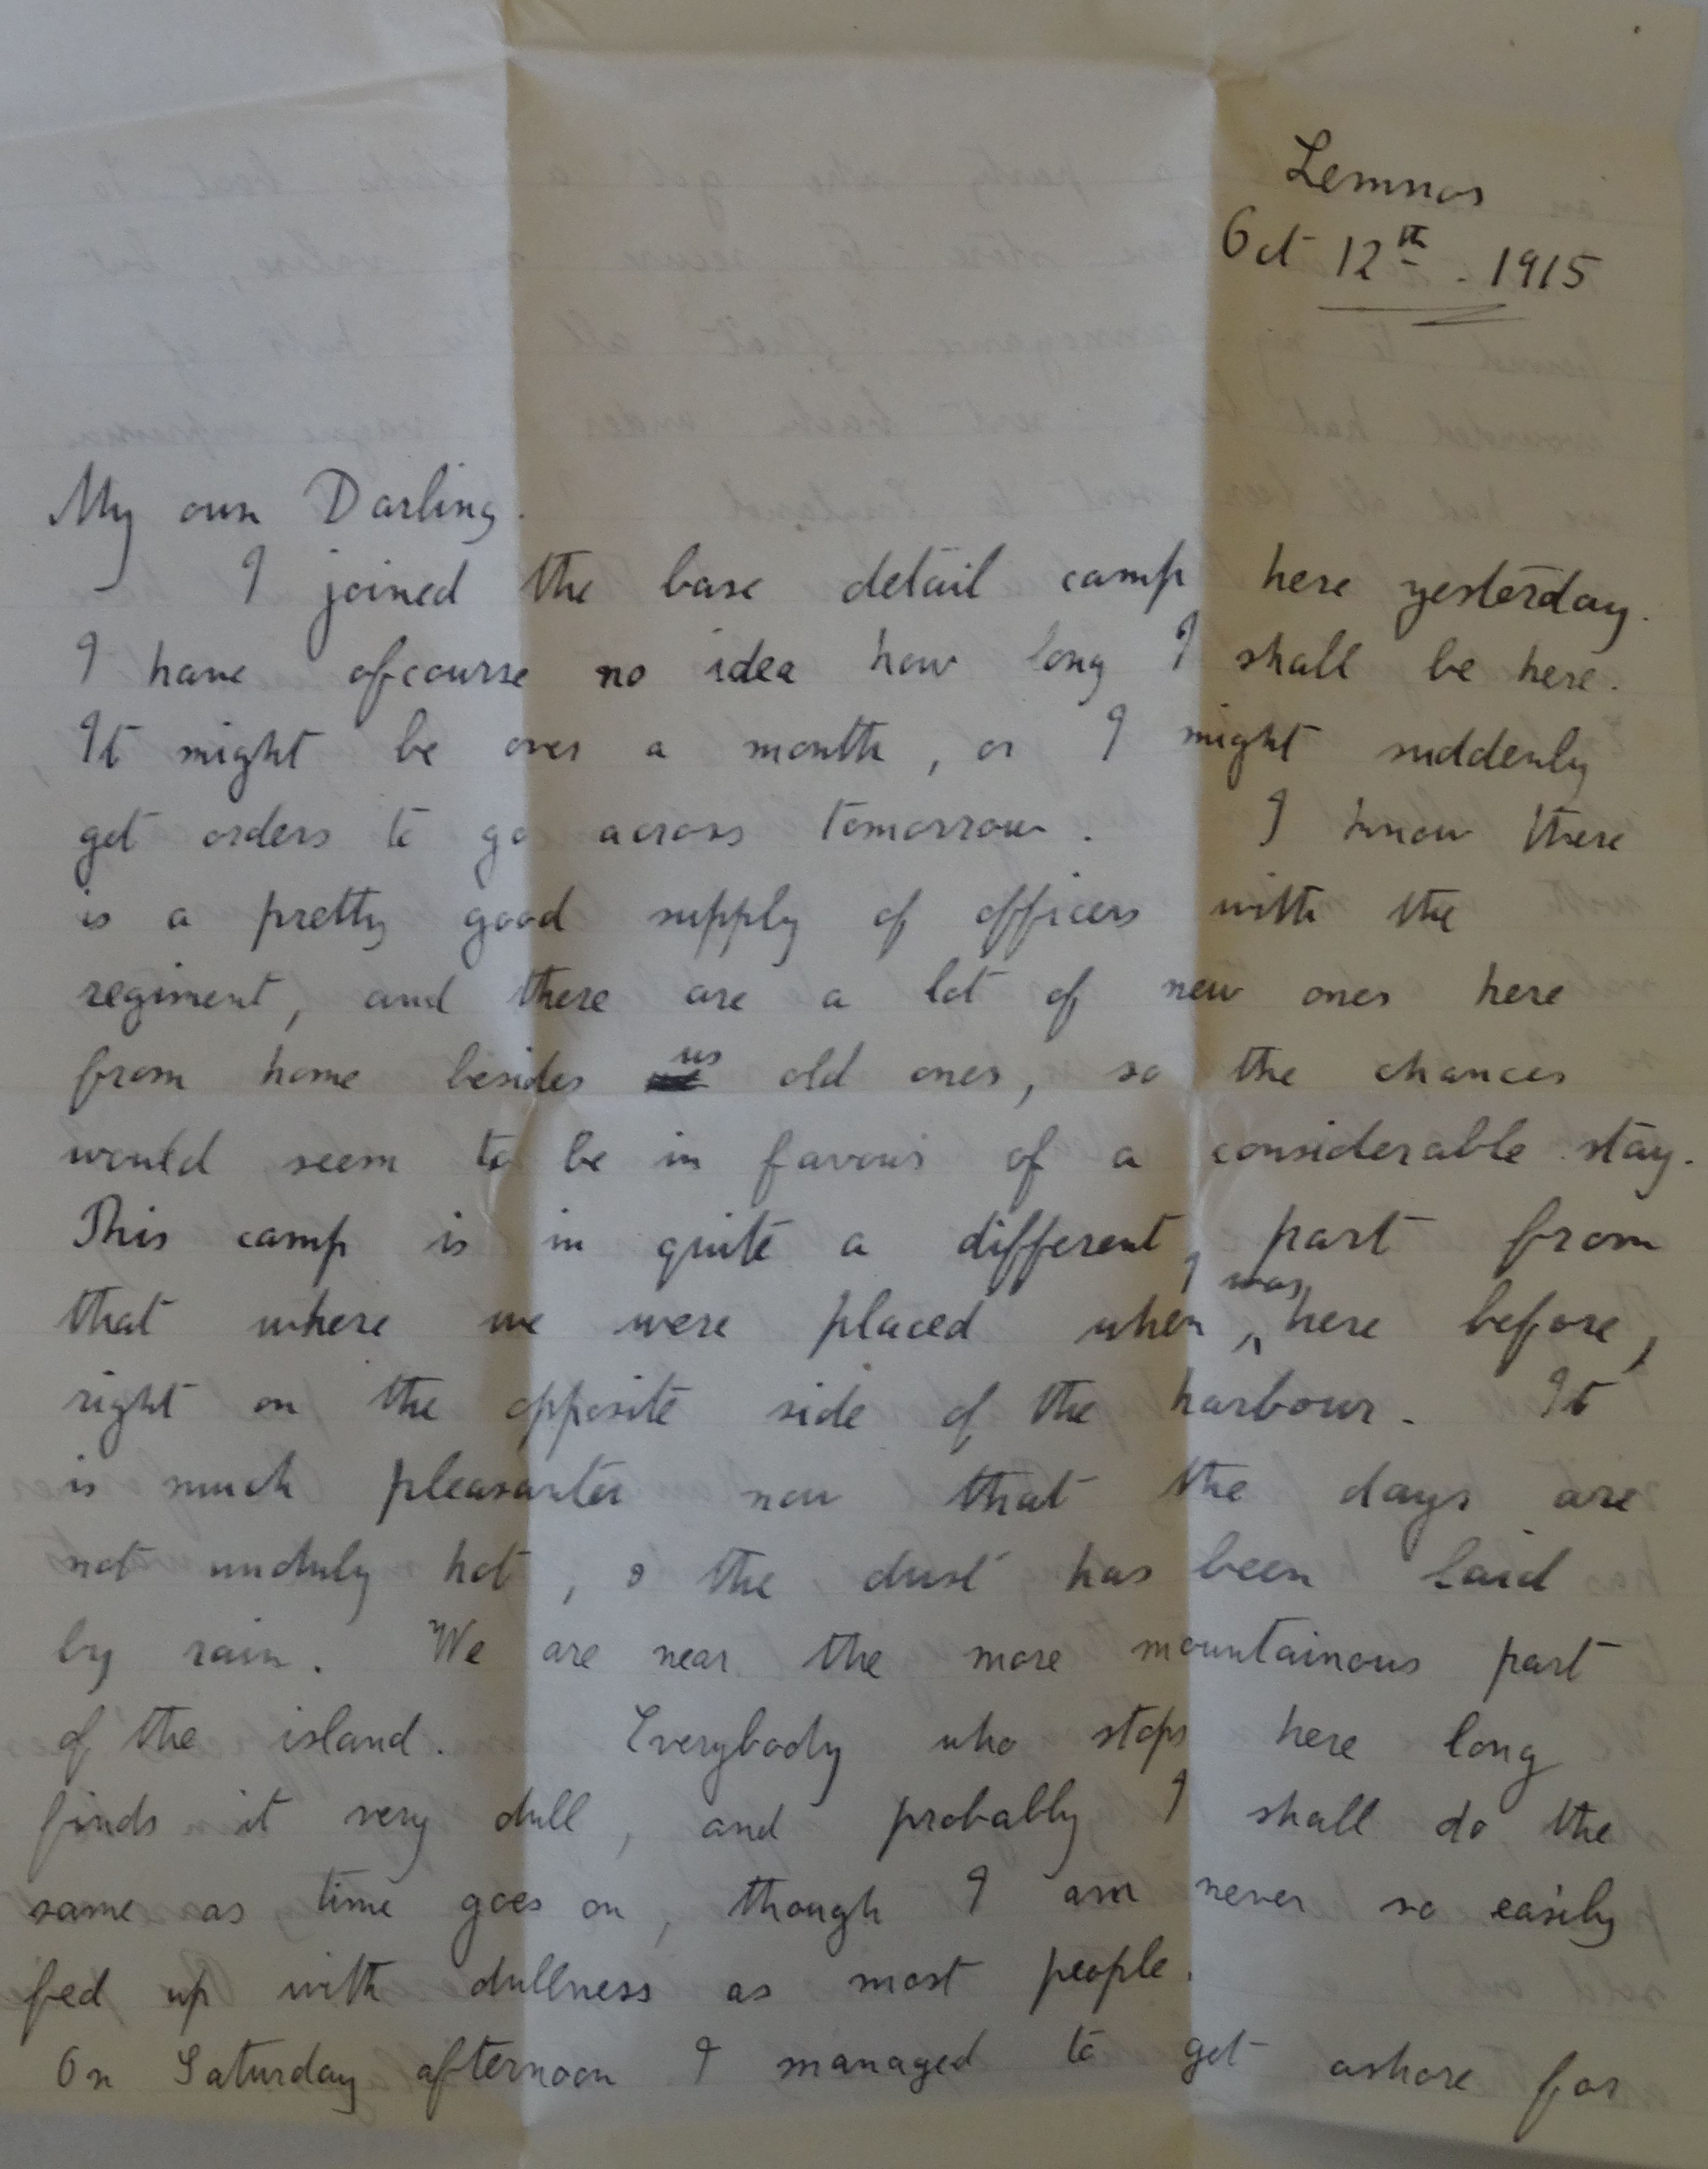 Lemnos
Oct 12th. 1915
My own Darling.
I joined the base detail camp here yesterday.
I have ofcourse no idea how long I shall be here.
It might be over a month, or I might suddenly
get orders to go across tomorrow. I know there
is a pretty good supply of officers with the
regiment, and there are a lot of new ones here
from home besides us old ones, so the chances
would seem to be in favour of a considerable stay.
This camp is in quite a different part from
that where we were placed when I was here before,
right on the opposite side of the harbour. It
is much pleasanter now that the days are
not unduly hot, & the dust has been laid
by rain. We are near the more mountainous part
of the island. Everybody who stops here long
finds it very dull, and probably I shall do the
same as time goes on, though I am never so easily
fed up with dullness as most people.
On Saturday afternoon I managed to get ashore for